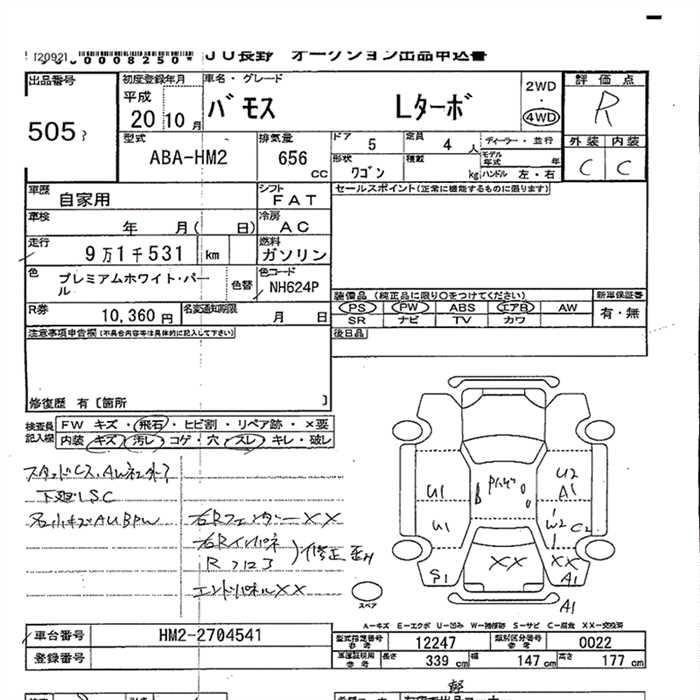 JU長野 オークション出品申込書
0008250*
出品番号 505
初度登録年月 平成 20 10月
車名・グレード バモス Lターボ
2WD・4WD
評価点 R
外装 内装
C C
型式 ABA-HM2
排気量 656 CC
ドア 5
定員 4人
ディーラー・並行
形状 ワゴン
積載 kg
モデル年式 年
ハンドル 左・右
車歴 自家用
シフト FAT
セールスポイント(正常に機能するものに限ります)
車検 年 月( 日)
冷房 AC
走行 9万1千531 km
燃料 ガソリン
色 プレミアムホワイト・パール
色替
色コード NH624P
R券 10,360円
名変通知期限 月 日
装備品(純正品に限り○をつけてください)
新車保証書
PS PW ABS エアB AW
有・無
SR ナビ TV カワ
注意事項申告欄(不具合内容等は具体的に記入して下さい)
後日品
修復歴 有〔箇所 〕
検査員記入欄
FW キズ・飛石・ヒビ割・リペア跡・×要
内装 キズ・汚レ・コゲ・穴・スレ・キレ・破レ
下廻りSC
右Rフェンダー XX
右Rインパネ
Rフロア
修正歪み
エンドパネル XX
U1
U1
S1
U2
A1
W2
C2
XX
XX
A1
A1
スペア
A-キズ E-エクボ U-凹み W-補修跡 S-サビ C-腐食 XX-交換済
車台番号 HM2-2704541
型式指定番号 参考 12247
類別区分番号 参考 0022
登録番号
車運証採用 参考
長さ 339 cm
幅 147 cm
高さ 177 cm